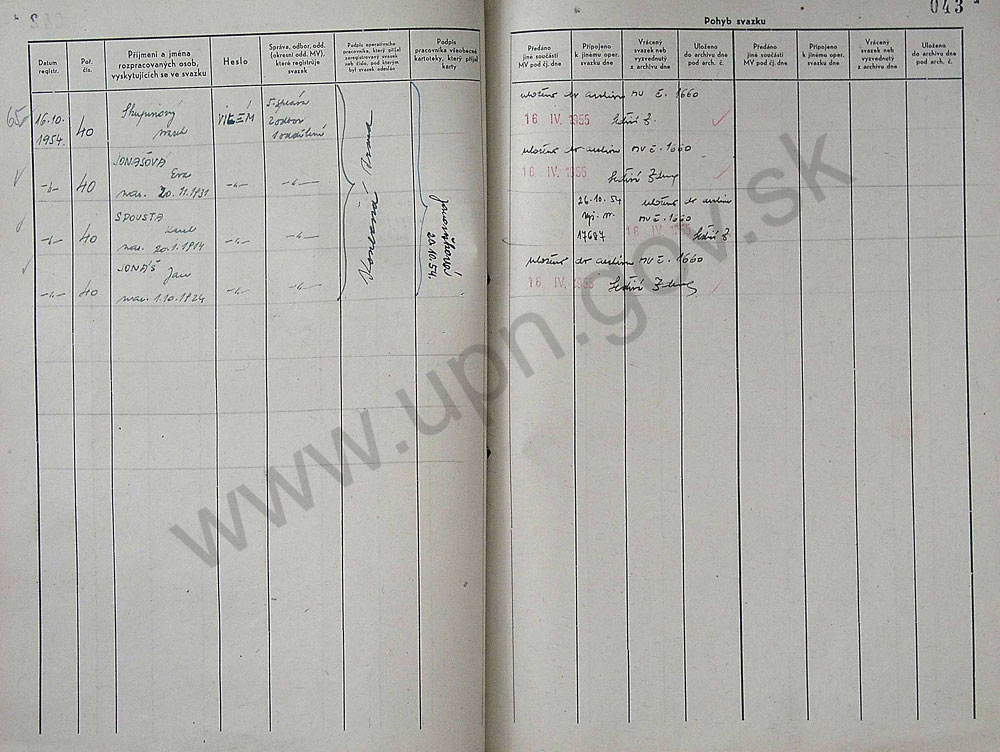 043
Datum registr.
Poř. čís.
Příjmení a jména rozpracovaných osob, vyskytujících se ve svazku
Heslo
Správa, odbor, odd. (okresní odd. MV), které registruje svazek
Podpis operativního pracovníka, který přijal zaregistrovaný svazek neb číslo, pod kterým byl svazek odeslán
Podpis pracovníka všeobecné kartoteky, který přijal karty
Pohyb svazku
Předáno jiné součásti MV pod čj. dne
Připojeno k jinému oper. svazku dne
Vrácený svazek neb vyzvednutý z archivu dne
Uloženo do archivu dne pod arch. č.
Předáno jiné součásti MV pod čj. dne
Připojeno k jinému oper. svazku dne
Vrácený svazek neb vyzvednutý z archivu dne
Uloženo do archivu dne pod arch. č.
65
16.10. 1954. 40 Skupinový svazek VILÉM 5 správa 2 odbor 1 oddělení
uloženo do archivu MV č. 1660
16 IV. 1955
JONAŠOVÁ Eva
-"- 40 nar. 20.11.1931 -"- -"-
uloženo do archivu MV č. 1660
16 IV. 1955
SPOUSTA Karel
-"- 40 nar. 20.1.1914 -"- -"-
26.10.54 uloženo do archivu
MV č. 1660
17687 16 IV. 1955
JONÁŠ Jan
-"- 40 nar. 1.10.1924 -"- -"-
uloženo do archivu MV č. 1660
16 IV. 1955
20.10.54.
www.upn.gov.sk